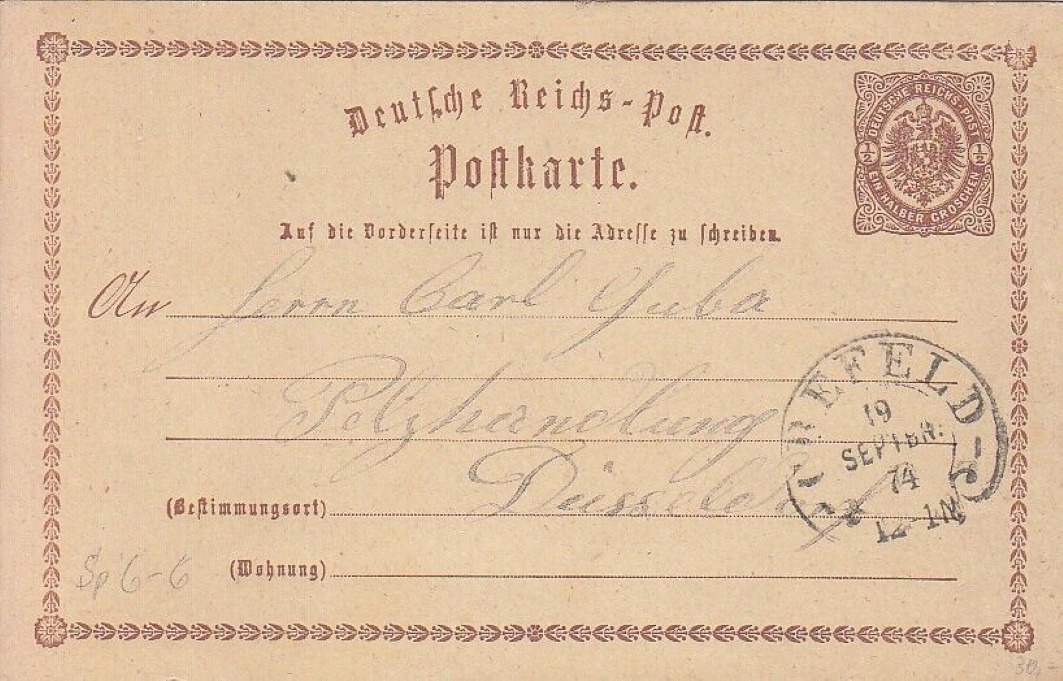 Deutsche Reichs-Post.
Postkarte.
DEUTSCHE REICHS-POST
½ ½
EIN HALBER GROSCHEN
Auf die Vorderseite ist nur die Adresse zu schreiben.
An Herrn Carl Guba
Pelzhandlung
(Bestimmungsort) Düsseldorf
(Wohnung)
CREFELD
19
SEPTBR.
74
12-1N
Sp 6-6